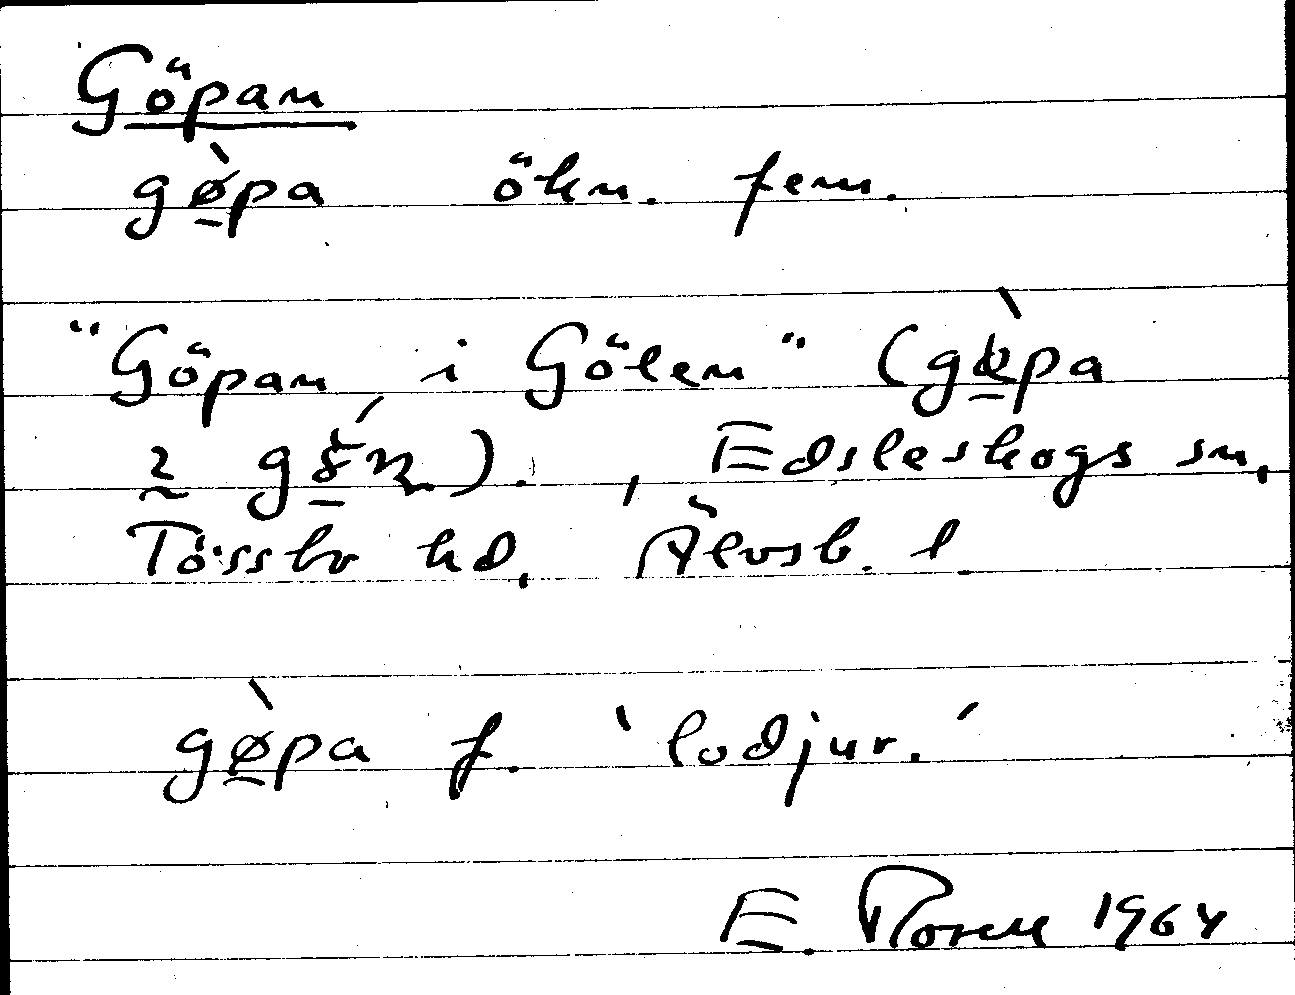 Göpan
gø̱̀pa ökn. fem.
"Göpan i Gölen" (gø̱̀pa
Edsleskogs sn,
Tössbo hd, Älvsb. l.
gø̱̀pa f. `lodjur.´
E. 1964